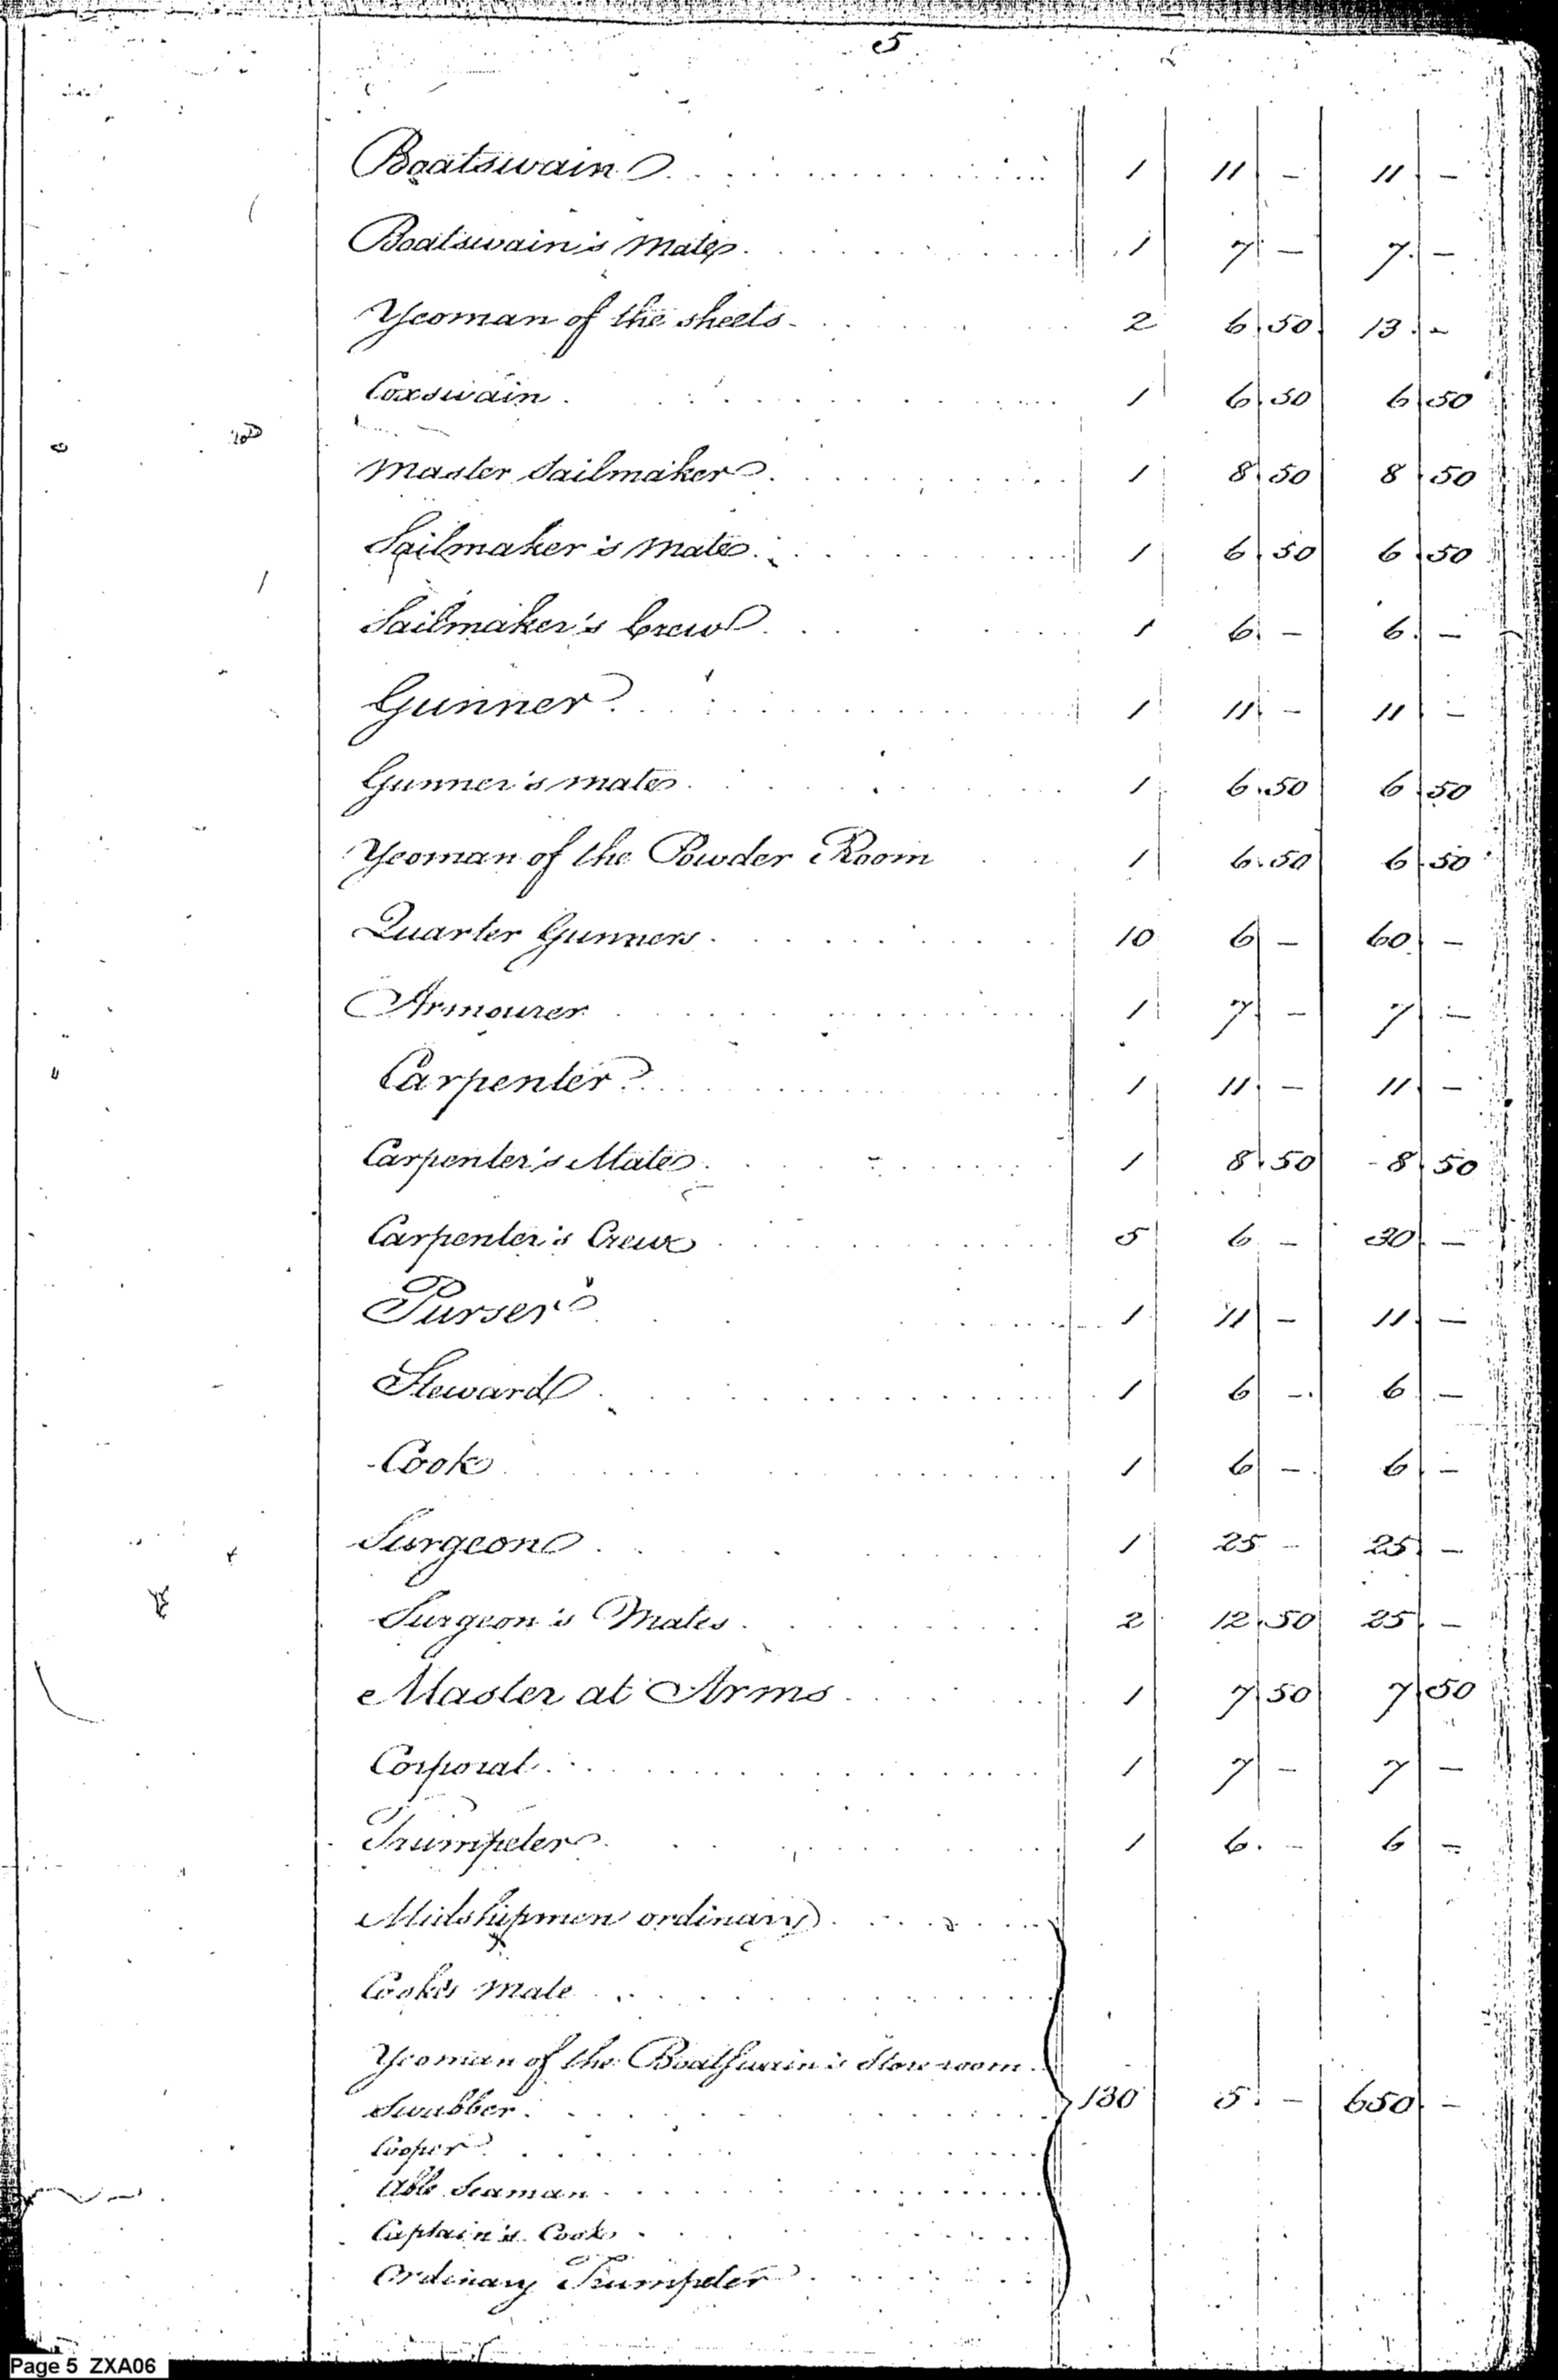 5
Boatswain 1 11 - 11 -
Boatswain's Mate 1 7 - 7 -
Yeoman of the sheets 2 6 50 13 -
Coxswain 1 6 50 6 50
Master Sailmaker 1 8 50 8 50
Sailmaker's Mate 1 6 50 6 50
Sailmaker's Crew 1 6 - 6 -
Gunner 1 11 - 11 -
Gunner's mate 1 6 50 6 50
Yeoman of the Powder Room 1 6 50 6 50
Quarter Gunners 10 6 - 60 -
Armourer 1 7 - 7 -
Carpenter 1 11 - 11 -
Carpenter's Mate 1 8 50 8 50
Carpenter's Crew 5 6 - 30 -
Purser 1 11 - 11 -
Steward 1 6 - 6 -
Cook 1 6 - 6 -
Surgeon 1 25 - 25 -
Surgeon's Mates 2 12 50 25 -
Master at Arms 1 7 50 7 50
Corporal 1 7 - 7 -
Trumpeter 1 6 - 6 -
Midshipmen ordinary
Cook's Mate
Yeoman of the Boatswain's Store room
Swabber 130 5 - 650 -
Cooper
Able Seaman
Captain's Cook
Ordinary Trumpeter
Page 5 ZXA06